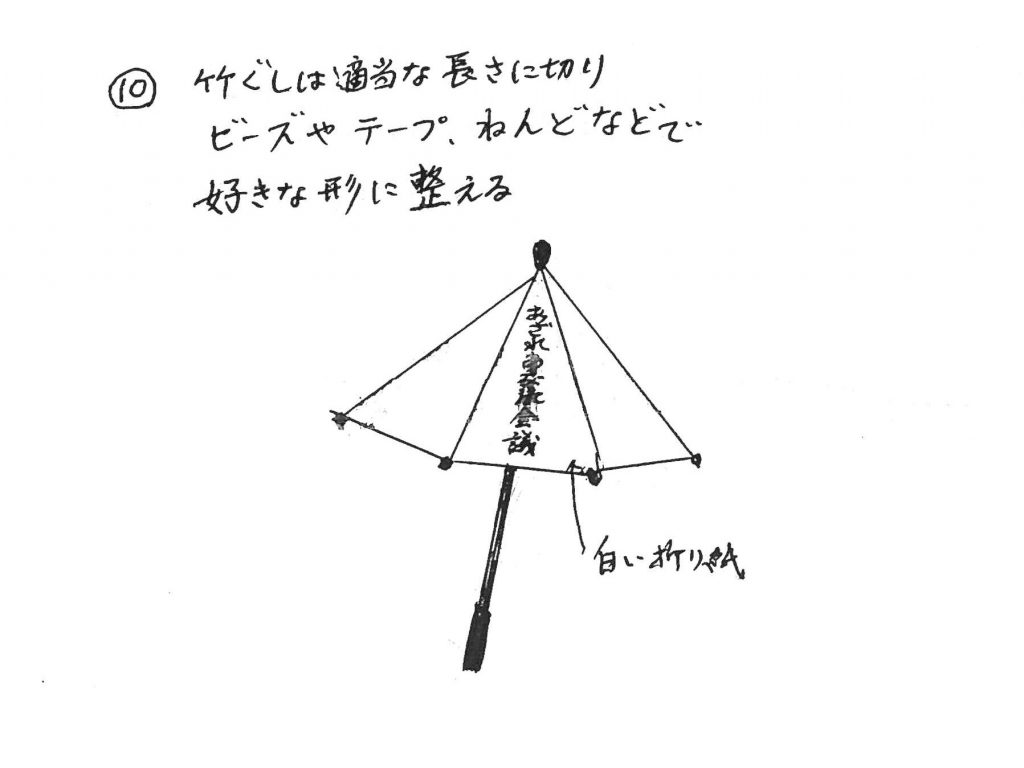 ⑩ 竹ぐしは適当な長さに切り
ビーズや テープ、ねんどなどで
好きな形に整える
会議
白い折り紙